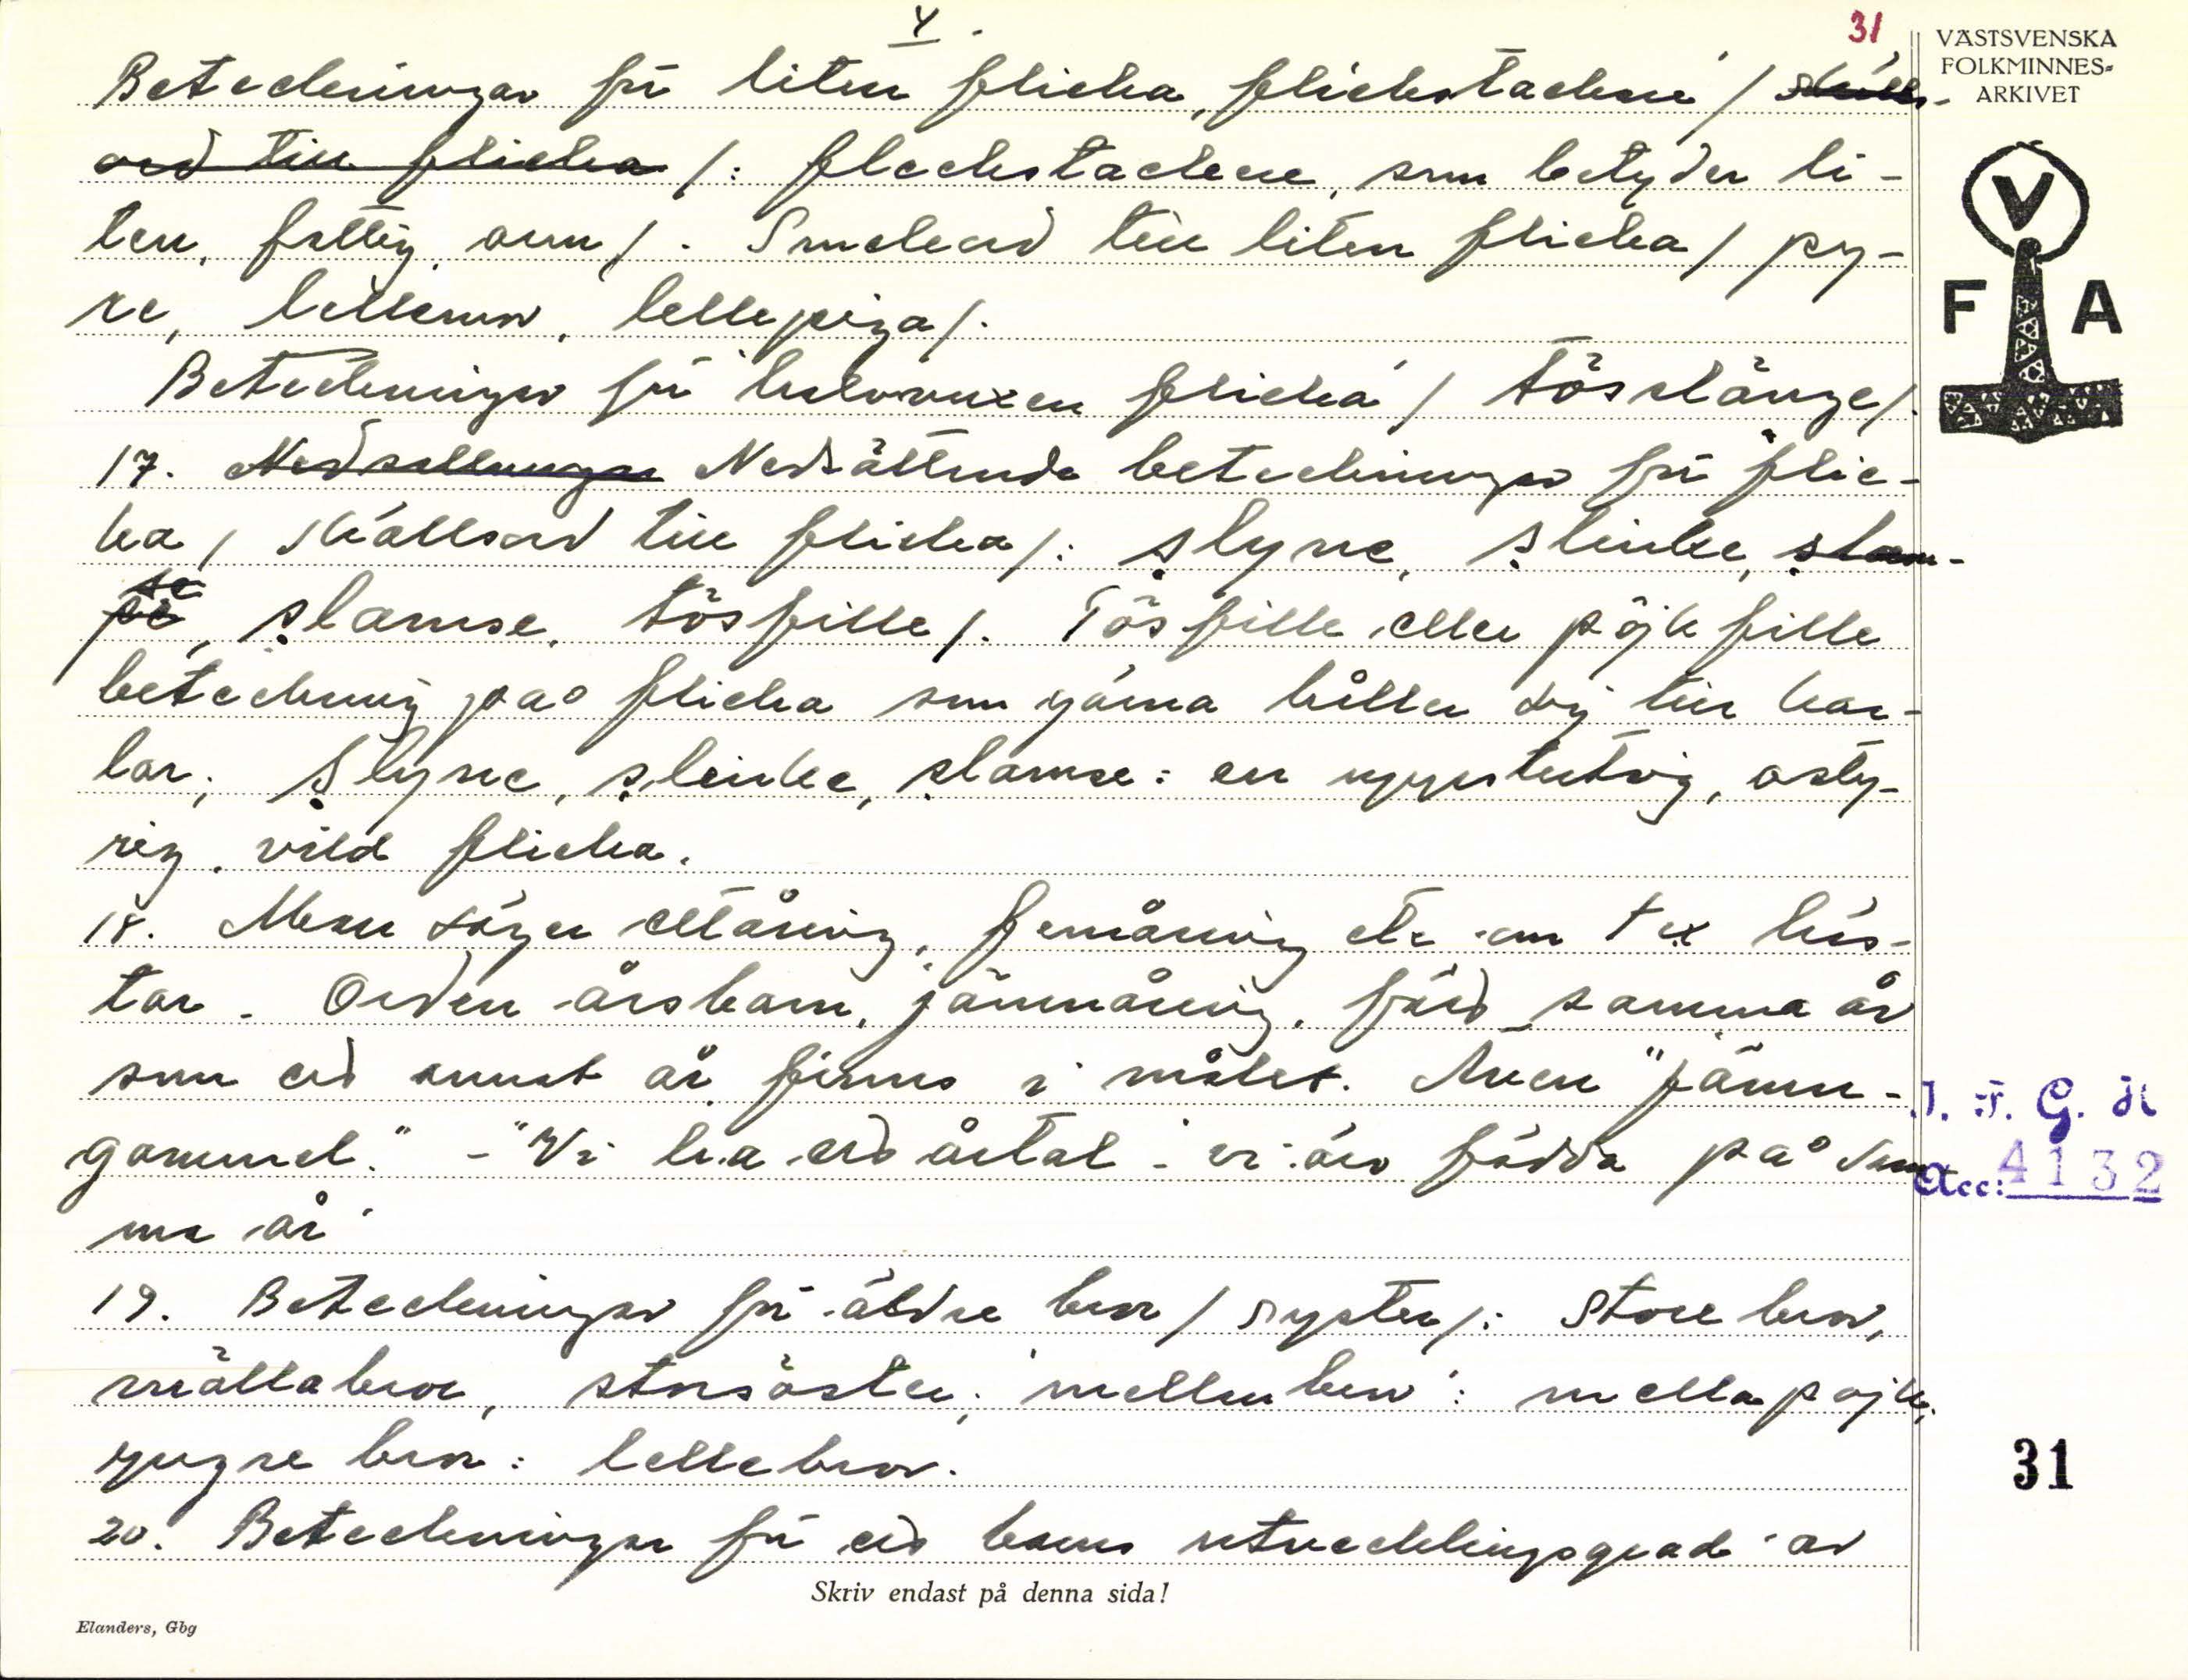 4.
31
VÄSTSVENSKA
FOLKMINNES-
ARKIVET
V
F A
Beteckningar för liten flicka, flickstackare / skälls-
ord till flicka /: fleckstackere, som betyder li-
ten, fattig, arm /. Smekord till liten flicka / py-
re, lellemor, lellepiga /.
Beteckningar för halvvuxen flicka / tösslänge /.
17. Nedsettningar Nedsättande beteckningar för flic-
ka / skällsord till flicka /: slyne, slinke, slam-
pe, slamse, tösfille /. Tösfille eller pöjkfille
beteckning på flicka som gärna håller sig till kar-
lar; Slyne, slinke, slamse: en uppstudsig, osty-
rig, vild flicka.
18. Man säger ettåring, femåring etc om t ex häs-
tar. Orden årsbarn, jämnåring, född samma år
som ed annat år finns i målet. Även "jämn-
gammel." - "Vi ha ed årtal - vi äro födda på sam
ma år"
19. Beteckningar för äldre bror / syster /: store bror,
mällabror, storsöster, mellan bror: mella pojk,
yngre bror: lellebror.
20. Beteckningar för ed barns utvecklingsgrad av
I. F. G. H
Acc: 4132
31
Skriv endast på denna sida!
Elanders, Gbg